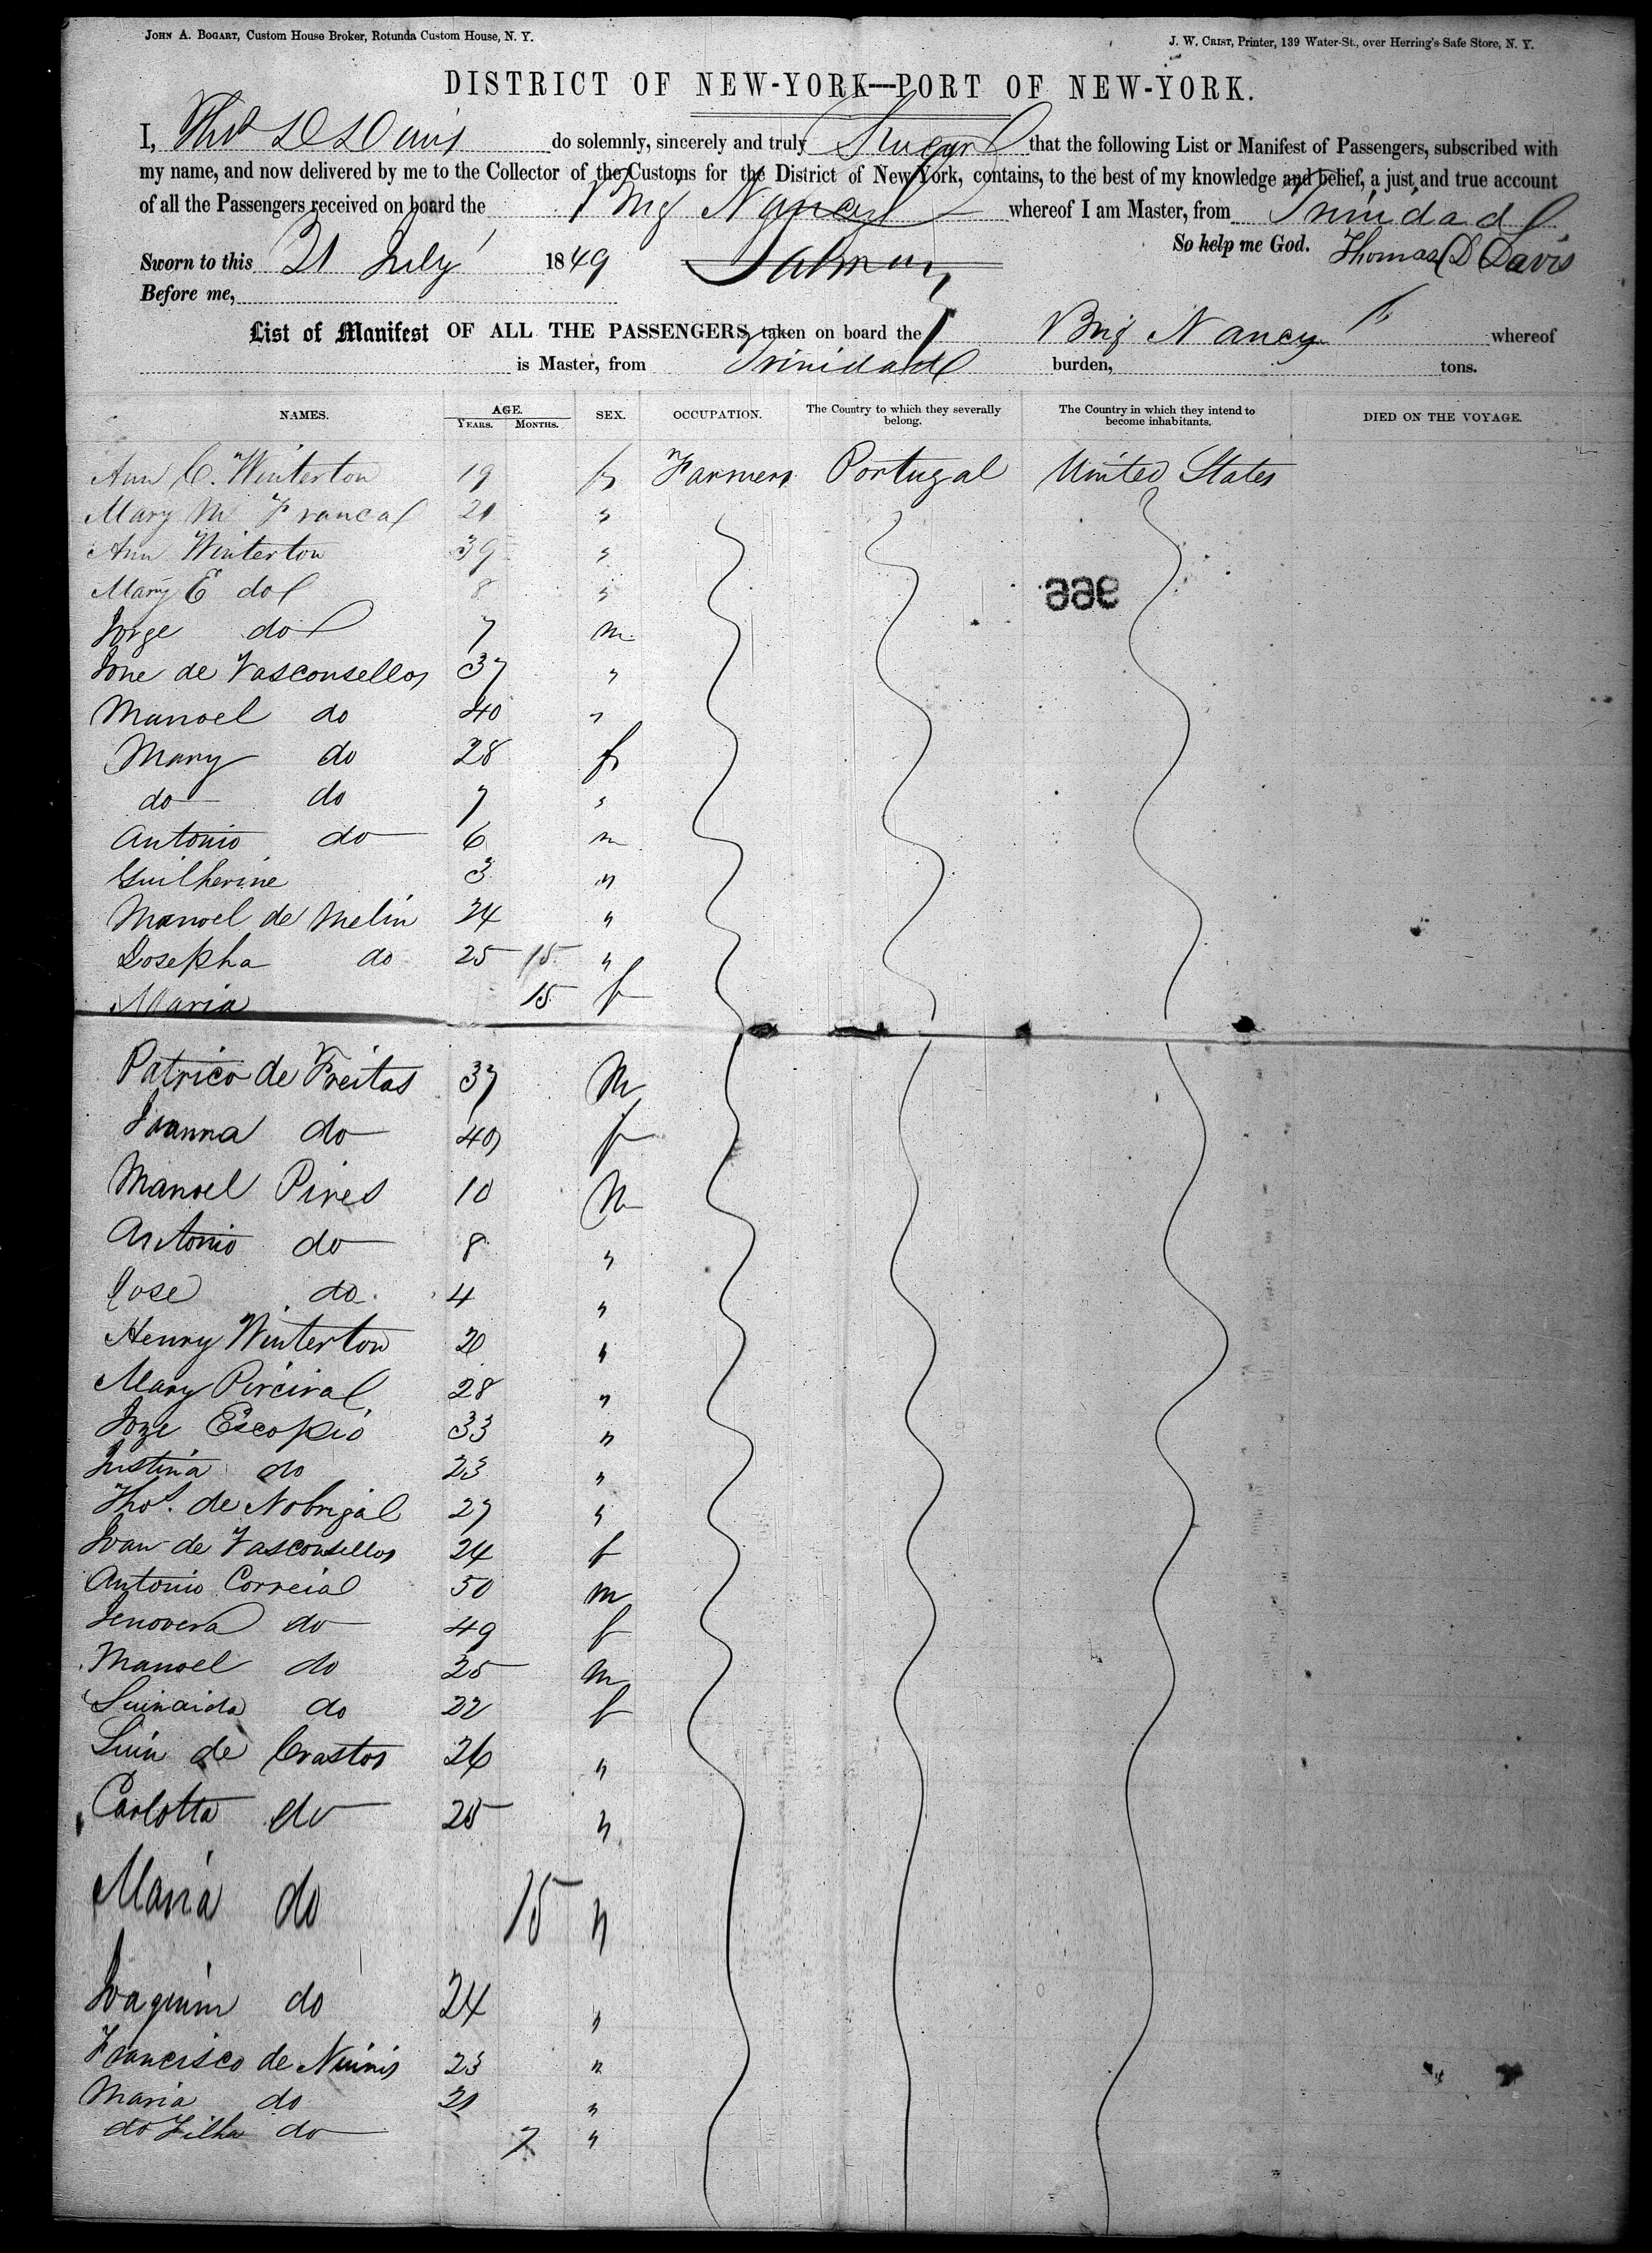 JOHN A. BOGART, Custom House Broker, Rotunda Custom House, N. Y.
J. W. CRIST, Printer, 139 Water-St., over Herring's Safe Store, N. Y.
DISTRICT OF NEW-YORK—PORT OF NEW-YORK.
I, Thos D Davis do solemnly, sincerely and truly Swear that the following List or Manifest of Passengers, subscribed with
my name, and now delivered by me to the Collector of the Customs for the District of New York, contains, to the best of my knowledge and belief, a just and true account
of all the Passengers received on board the Brig Nancy whereof I am Master, from Trinidad
So help me God. Thomas D Davis
Sworn to this 21 July 1849
Before me,
List of Manifest OF ALL THE PASSENGERS taken on board the Brig Nancy whereof
is Master, from Trinidad burden, tons.
NAMES. AGE. YEARS. MONTHS. SEX. OCCUPATION. The Country to which they severally belong. The Country in which they intend to become inhabitants. DIED ON THE VOYAGE.
Ann C. Winterton 19 f Farmers Portugal United States
Mary M Franca 21 "
Ann Winterton 39 "
Mary E do 8 "
996
Jorge do 7 m
Jone de Vasconsellos 37 "
Manoel do 40 "
Mary do 28 f
do do 7 "
Antonio do 6 m
Guilherine 3 "
Manoel de Melin 24 "
Josepha do 25 15 "
Maria 15 f
Patrico de Freitas 37 M
Joanna do 40 f
Manoel Pires 10 M
Antonio do 8 "
Jose do 4 "
Henry Winterton 20 "
Mary Pircival 28 "
Joze Escopio 33 "
Justina do 23 "
Thos. de Nobriga 27 "
Joan de Vasconsellos 24 f
Antonio Correia 50 m
Jenovera do 49 f
Manoel do 25 m
do 22 f
Luin de Crastos 26 "
Carlotta do 25 "
Maria do 15 "
Joaquim do 24 "
Francisco de Nuinis 23 "
Maria do 21 "
do Filha do 7 "